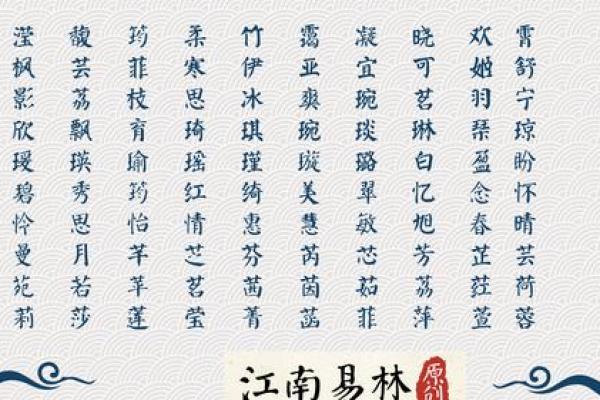 滢 馥 筠 柔 竹 霭 凝 晓 欢 霄
枫 芸 菲 寒 伊 亚 宜 可 姬 舒
影 荔 枝 思 冰 爽 琬 茗 羽 宁
欣 飘 育 琦 琪 琬 琰 琳 琹 琼
瑗 瑛 瑜 瑶 瑾 璇 璐 白 盈 盼
碧 秀 筠 红 绮 美 翠 忆 念 怀
怜 思 怡 情 惠 慧 敏 旭 春 晴
曼 月 芊 芝 芬 芮 芯 芳 芷 芸
苑 若 苹 茗 茜 茵 茹 荔 荭 荷
莉 莎 莲 莹 菁 菡 菲 萍 萱 蓉
江南易林
原创